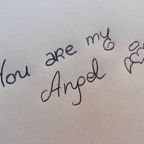 You are my
Angel